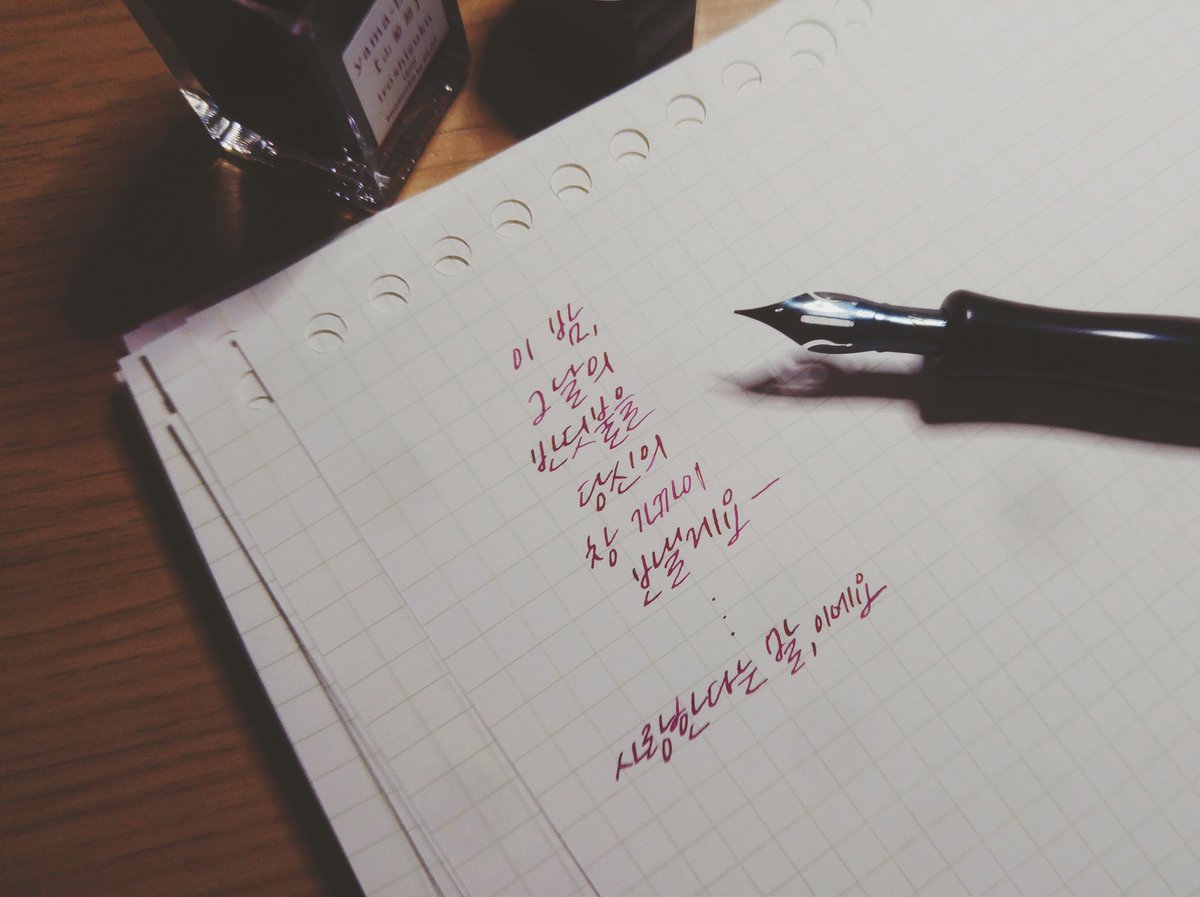 yama-b
[山葡萄]
iroshizuku
이 밤,
그날의
반딧불을
당신의
창 가까이
보낼게요 —
⋮
사랑한다는 말, 이에요